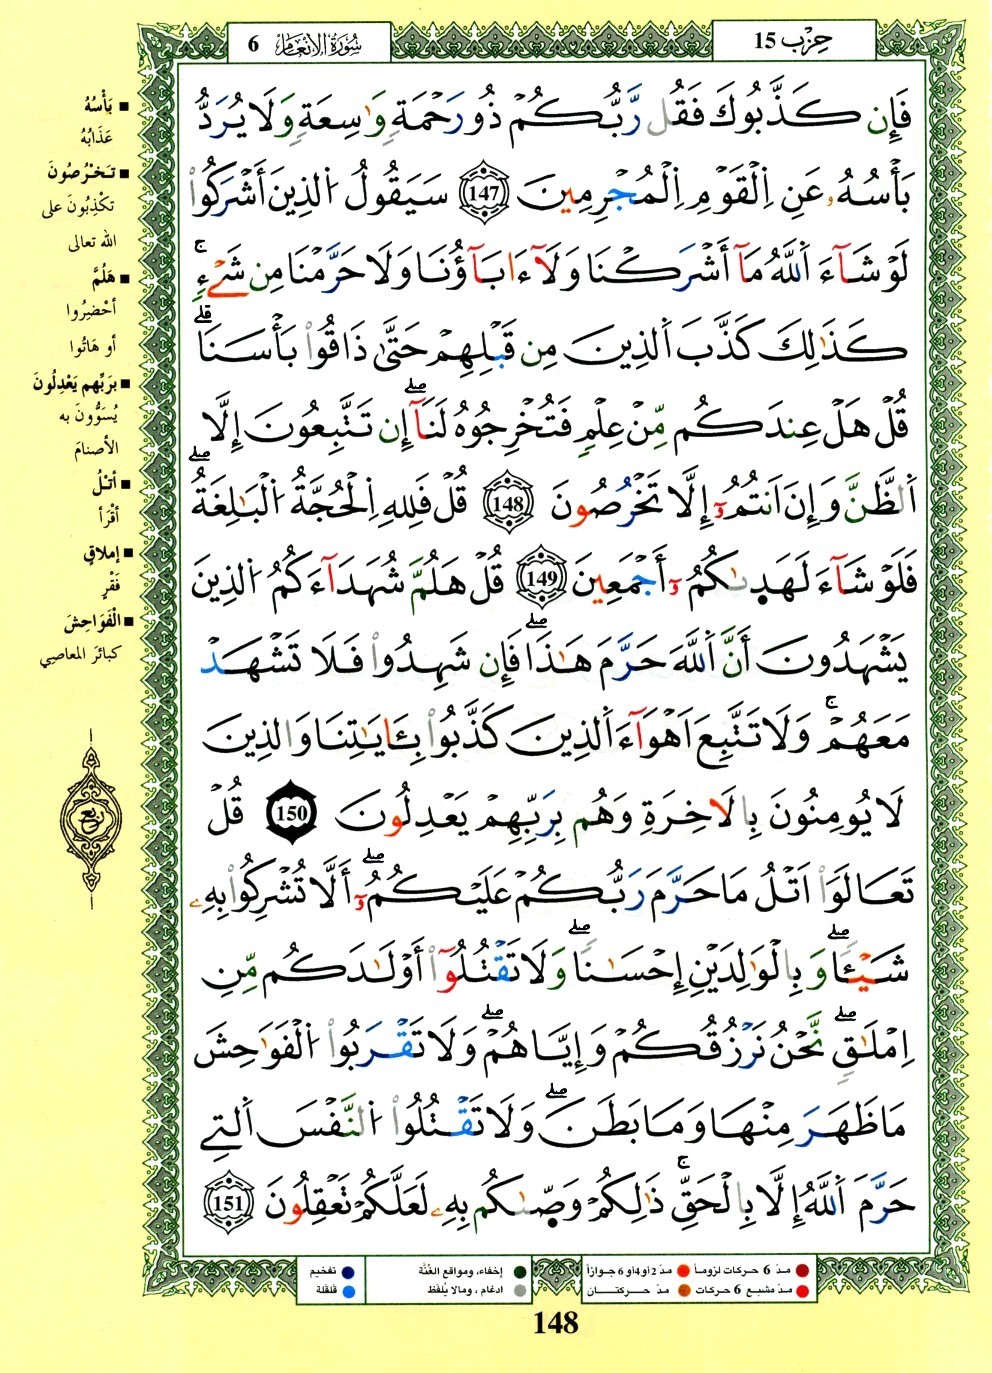 حِزْب 15
سُورَةُ الأَنْعَام 6
فَإِن كَذَّبُوكَ فَقُل رَّبُّكُمْ ذُو رَحْمَةٍ وَٰسِعَةٍ وَلَا يُرَدُّ
بَأْسُهُۥ عَنِ اِ۬لْقَوْمِ اِ۬لْمُجْرِمِينَ 147 سَيَقُولُ اُ۬لذِينَ أَشْرَكُواْ
لَوْ شَآءَ اَ۬للَّهُ مَآ أَشْرَكْنَا وَلَآ ءَابَآؤُنَا وَلَا حَرَّمْنَا مِن شَےْءٍۚ
كَذَٰلِكَ كَذَّبَ اَ۬لذِينَ مِن قَبْلِهِمْ حَتَّىٰ ذَاقُواْ بَأْسَنَاۗ
قُلْ هَلْ عِندَكُم مِّنْ عِلْمٍ فَتُخْرِجُوهُ لَنَآۖ إِن تَتَّبِعُونَ إِلَّا
اَ۬لظَّنَّ وَإِنَ اَنتُمُۥٓ إِلَّا تَخْرُصُونَۖ 148 قُلْ فَلِلهِ اِ۬لْحُجَّةُ اُ۬لْبَٰلِغَةُ
فَلَوْ شَآءَ لَهَد۪ىٰكُمُۥٓ أَجْمَعِينَ 149 قُلْ هَلُمَّ شُهَدَآءَكُمُ اُ۬لذِينَ
يَشْهَدُونَ أَنَّ اَ۬للَّهَ حَرَّمَ هَٰذَاۖ فَإِن شَهِدُواْ فَلَا تَشْهَدْ
مَعَهُمْۚ وَلَا تَتَّبِعَ اَهْوَآءَ اَ۬لذِينَ كَذَّبُواْ بِـَٔايَٰتِنَا وَالذِينَ
لَا يُومِنُونَ بِالَاخِرَةِ وَهُم بِرَبِّهِمْ يَعْدِلُونَ 150 قُلْ
تَعَالَوَاْ اَتْلُ مَا حَرَّمَ رَبُّكُمْ عَلَيْكُمُۥٓۖ أَلَّا تُشْرِكُواْ بِهِۦ
شَيْـٔاًۖ وَبِالْوَٰلِدَيْنِ إِحْسَٰناًۖ وَلَا تَقْتُلُوٓاْ أَوْلَٰدَكُم مِّنِ
اِمْلَٰقٍۖ نَّحْنُ نَرْزُقُكُمْ وَإِيَّاهُمْۖ وَلَا تَقْرَبُواْ اُ۬لْفَوَٰحِشَ
مَا ظَهَرَ مِنْهَا وَمَا بَطَنَۖ وَلَا تَقْتُلُواْ اُ۬لنَّفْسَ اَ۬لتِے
حَرَّمَ اَ۬للَّهُ إِلَّا بِالْحَقِّۚ ذَٰلِكُمْ وَصّ۪ىٰكُم بِهِۦ لَعَلَّكُمْ تَعْقِلُونَ 151
■ بَأْسُهُ
عَذَابُهُ
■ تَخْرُصُونَ
تَكْذِبُونَ على
الله تعالى
■ هَلُمَّ
أحْضِرُوا
أو هَاتُوا
■ بِرَبِّهِم يَعْدِلُونَ
يُسَوُّونَ به
الأصنامَ
■ أَتْلُ
أقْرَأ
■ إملاقٍ
فَقْرٍ
■ الْفَوَاحِشَ
كبائرَ المعاصِي
ربع
مدّ 6 حركات لزوماً
مدّ 2 أو 4 أو 6 جوازاً
إخفاء، ومواقع الغُنَّة
تفخيم
مدّ مشبع 6 حركات
مدّ حركتان
ادغام، ومالا يُلفَظ
قلقلة
148